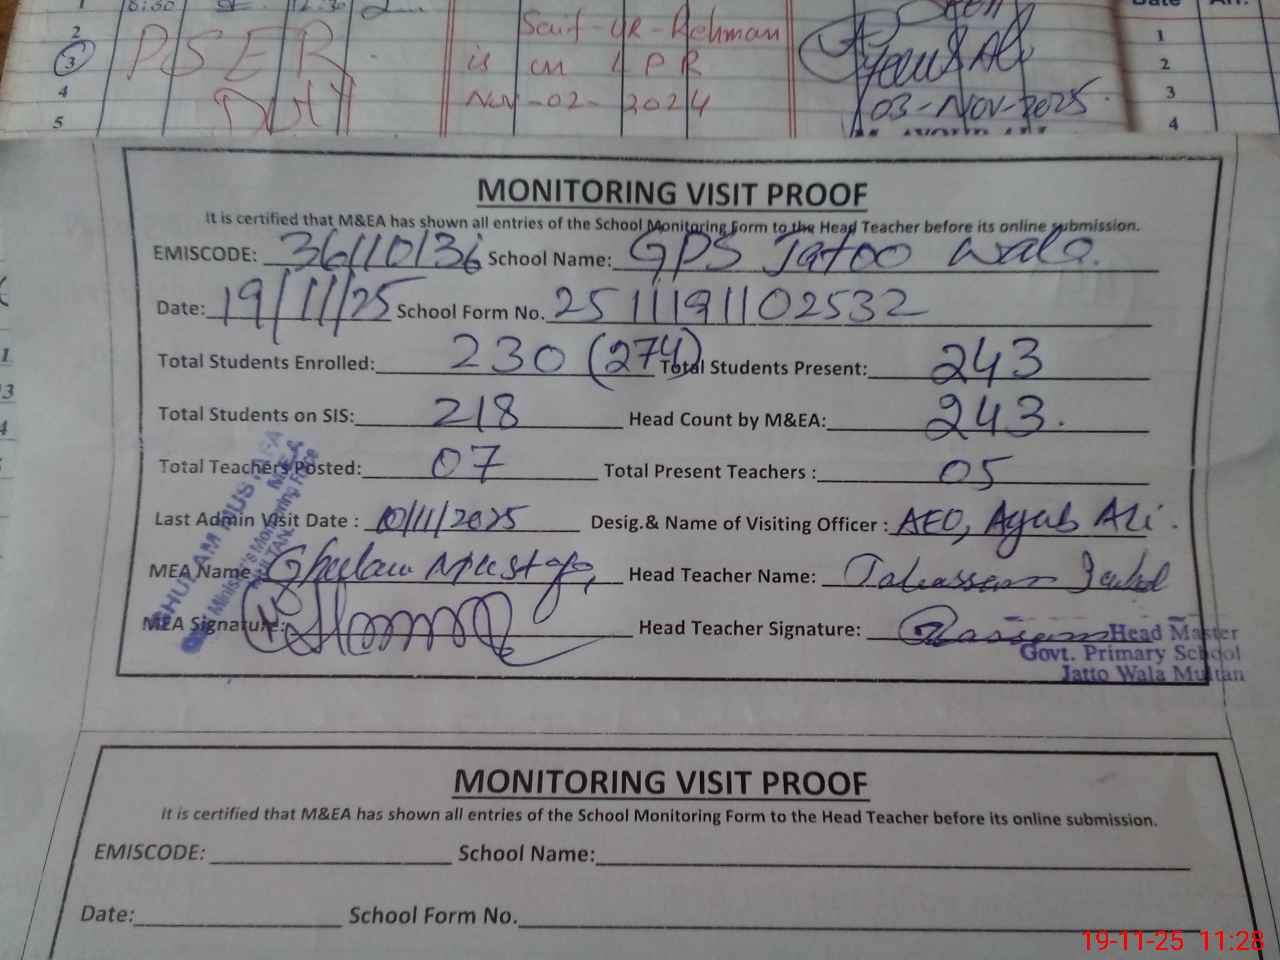 2
3
4
5
PSER
Duty
Saif-UR-Rehman
is on LPR
Nov-02-2024
03-NOV-2025.
1
2
3
4
MONITORING VISIT PROOF
It is certified that M&EA has shown all entries of the School Monitoring Form to the Head Teacher before its online submission.
EMISCODE: 36110136 School Name: GPS Jatoo wala.
Date: 19/11/25 School Form No. 2511191102532
Total Students Enrolled: 230 (274) Total Students Present: 243
Total Students on SIS: 218 Head Count by M&EA: 243.
Total Teachers Posted: 07 Total Present Teachers : 05
Last Admin Visit Date : 10/11/2025 Desig.& Name of Visiting Officer : AEO, Ayub Ali.
MEA Name: Ghulam Mustafa, Head Teacher Name:
MEA Signature: Head Teacher Signature:
GHULAM MUSTAFA
MEA
Chief Minister's Monitoring Force
MULTAN
Head Master
Govt. Primary School
Jatto Wala Multan
MONITORING VISIT PROOF
It is certified that M&EA has shown all entries of the School Monitoring Form to the Head Teacher before its online submission.
EMISCODE: School Name:
Date: School Form No.
19-11-25 11:28